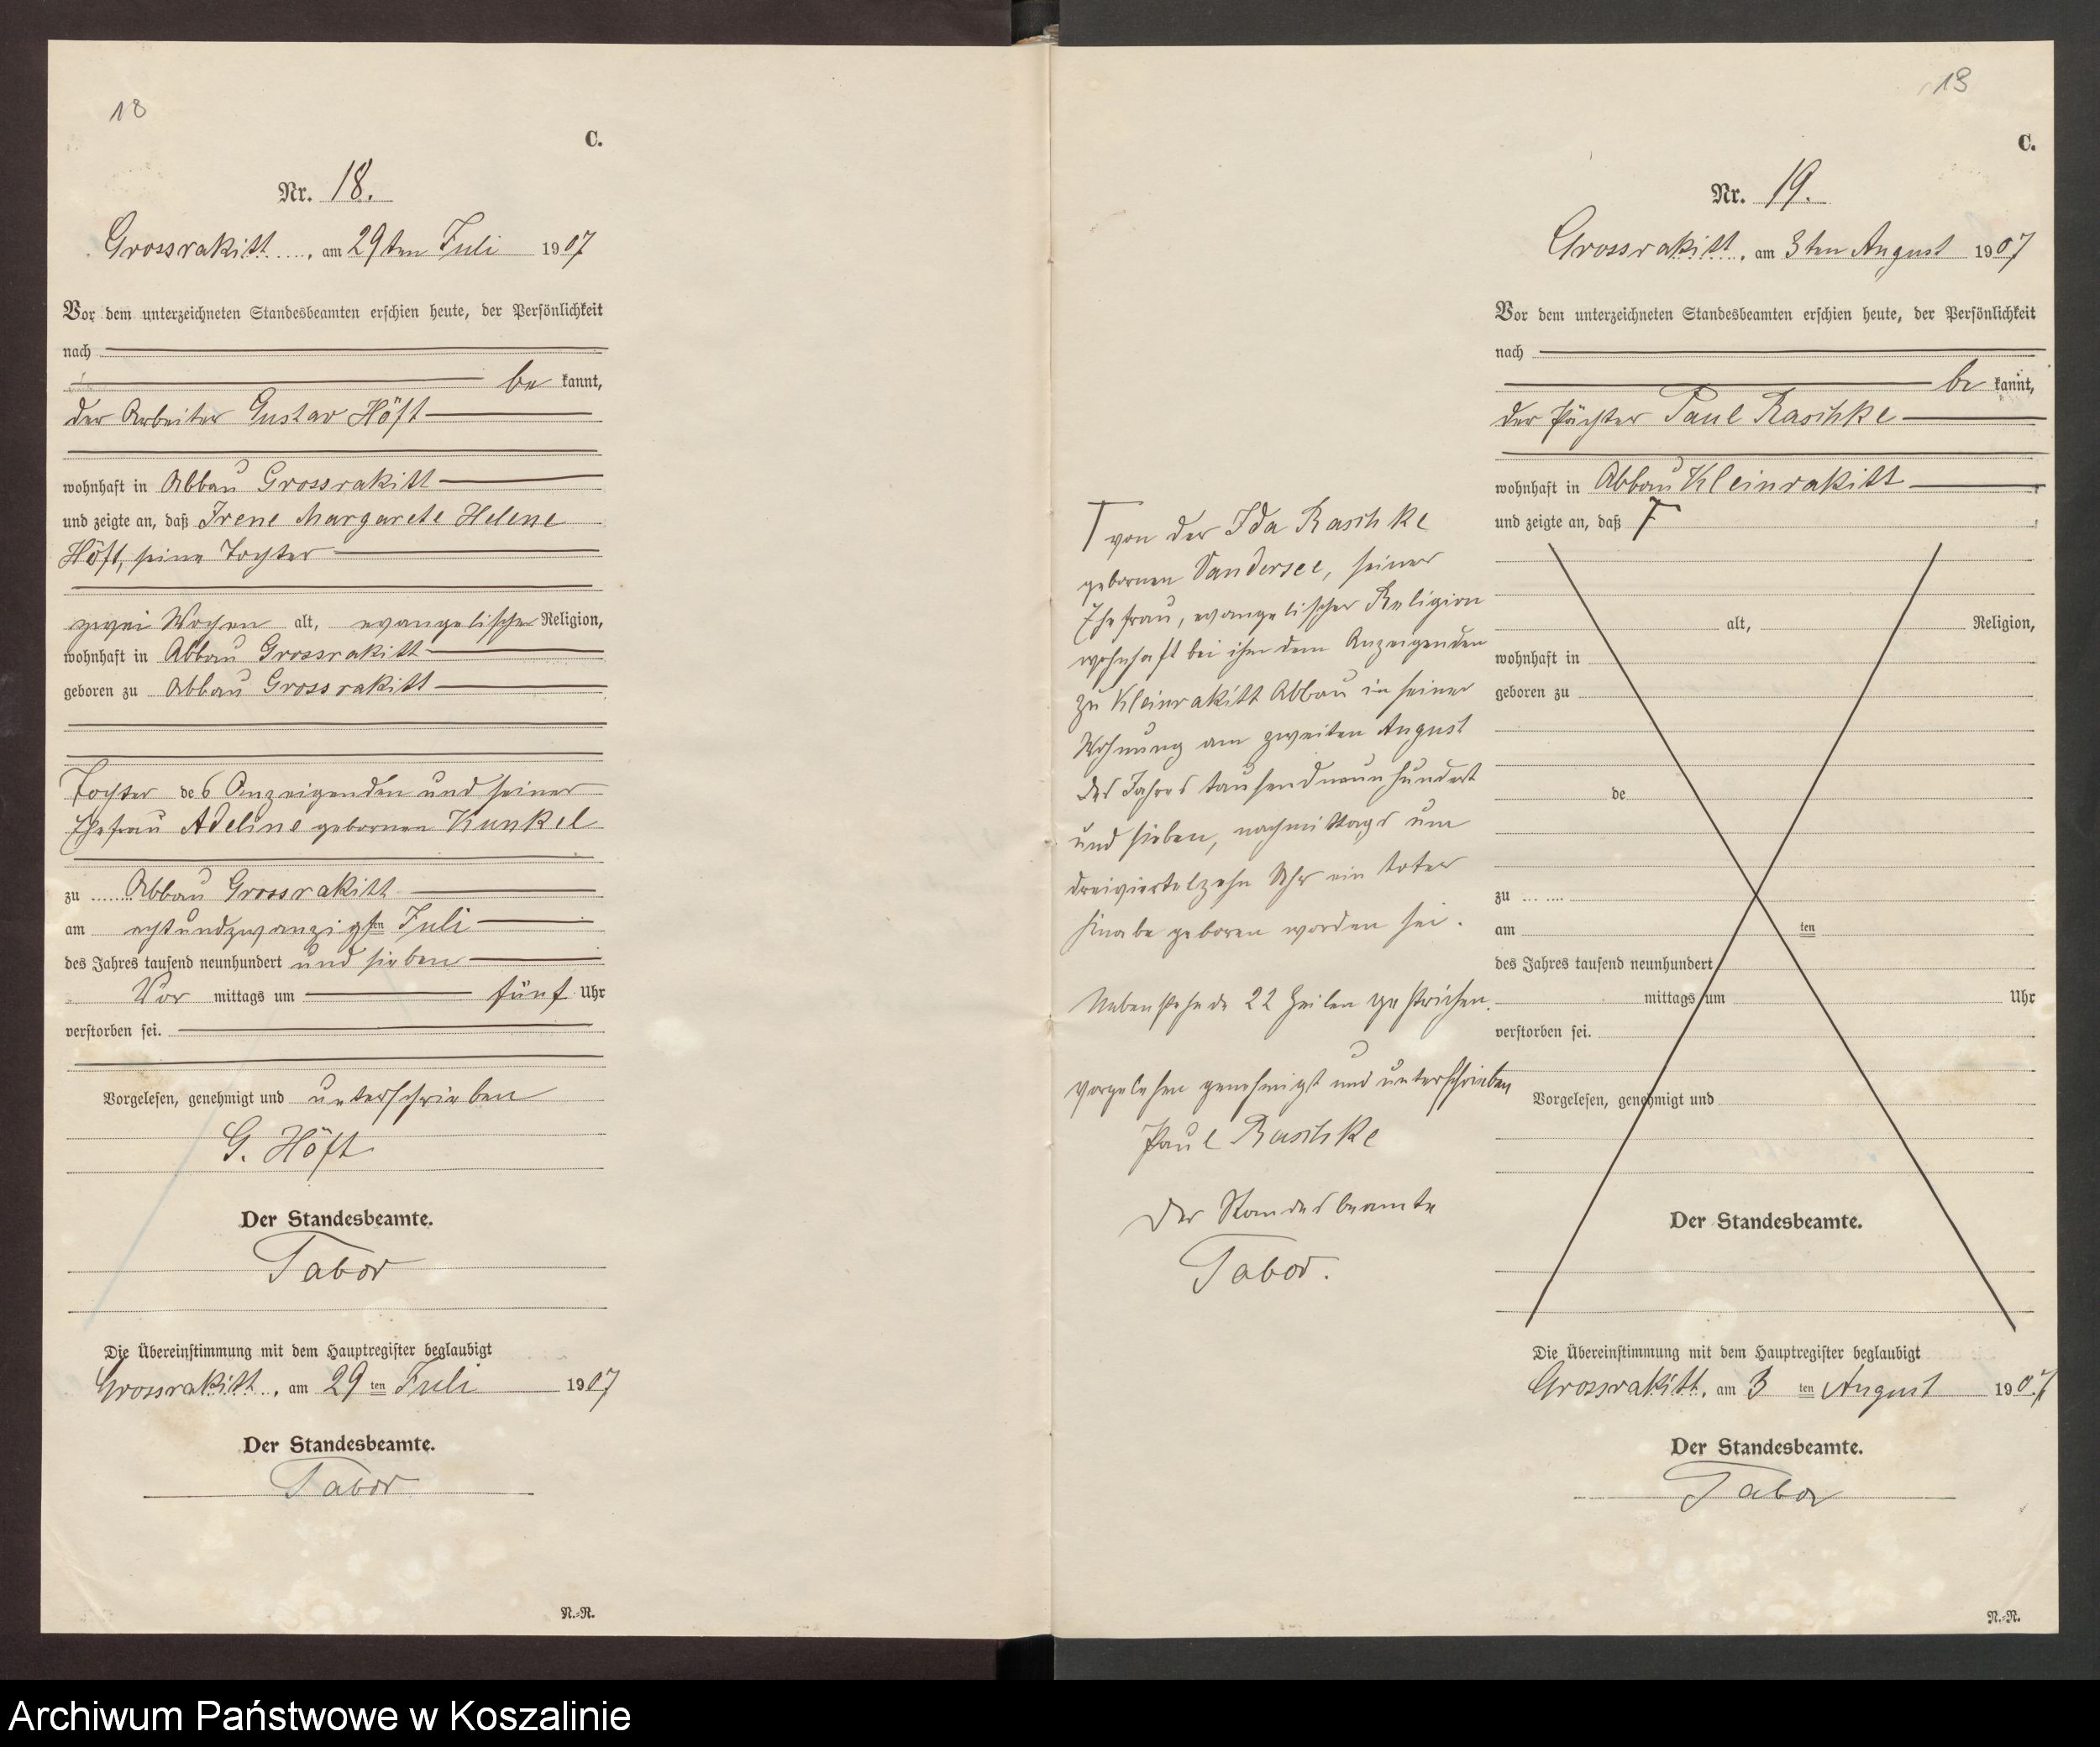 18
C.
Nr. 18.
Grossrakitt, am 29ten Juli 1907
Vor dem unterzeichneten Standesbeamten erschien heute, der Persönlichkeit
nach
be kannt,
der Arbeiter Gustav Höft
wohnhaft in Abbau Grossrakitt
und zeigte an, daß Irene Margarete Helene
Höft, seine Tochter
zwei Wochen alt, evangelischer Religion,
wohnhaft in Abbau Grossrakitt
geboren zu Abbau Grossrakitt
Tochter des Anzeigenden und seiner
Ehefrau Adeline gebornen Kunkel
zu Abbau Grossrakitt
am achtundzwanzigsten Juli
des Jahres tausend neunhundert und sieben
Vor mittags um fünf Uhr
verstorben sei.
Vorgelesen, genehmigt und unterschrieben
G. Höft
Der Standesbeamte.
Tabor
Die Übereinstimmung mit dem Hauptregister beglaubigt
Grossrakitt, am 29 ten Juli 1907
Der Standesbeamte.
Tabor
N.=R.
19
C.
Nr. 19.
Grossrakitt, am 3ten August 1907
Vor dem unterzeichneten Standesbeamten erschien heute, der Persönlichkeit
nach
be kannt,
der Pächter Paul Raschke
wohnhaft in Abbau Kleinrakitt
und zeigte an, daß
von der Ida Raschke
gebornen Sandersee, seiner
Ehefrau, evangelischer Religion
wohnhaft bei ihm dem Anzeigenden
zu Kleinrakitt Abbau in seiner
Wohnung am zweiten August
des Jahres tausendneunhundert
und sieben, nachmittags um
dreiviertelzehn Uhr ein toter
Knabe geboren worden sei.
Nebenstehende 22 Zeilen gestrichen.
vorgelesen genehmigt und unterschrieben
Paul Raschke
Der Standesbeamte
Tabor.
alt, Religion,
wohnhaft in
geboren zu
de
zu
am ten
des Jahres tausend neunhundert
mittags um Uhr
verstorben sei.
Vorgelesen, genehmigt und
Der Standesbeamte.
Die Übereinstimmung mit dem Hauptregister beglaubigt
Grossrakitt, am 3 ten August 1907
Der Standesbeamte.
Tabor
N.=R.
Archiwum Państwowe w Koszalinie